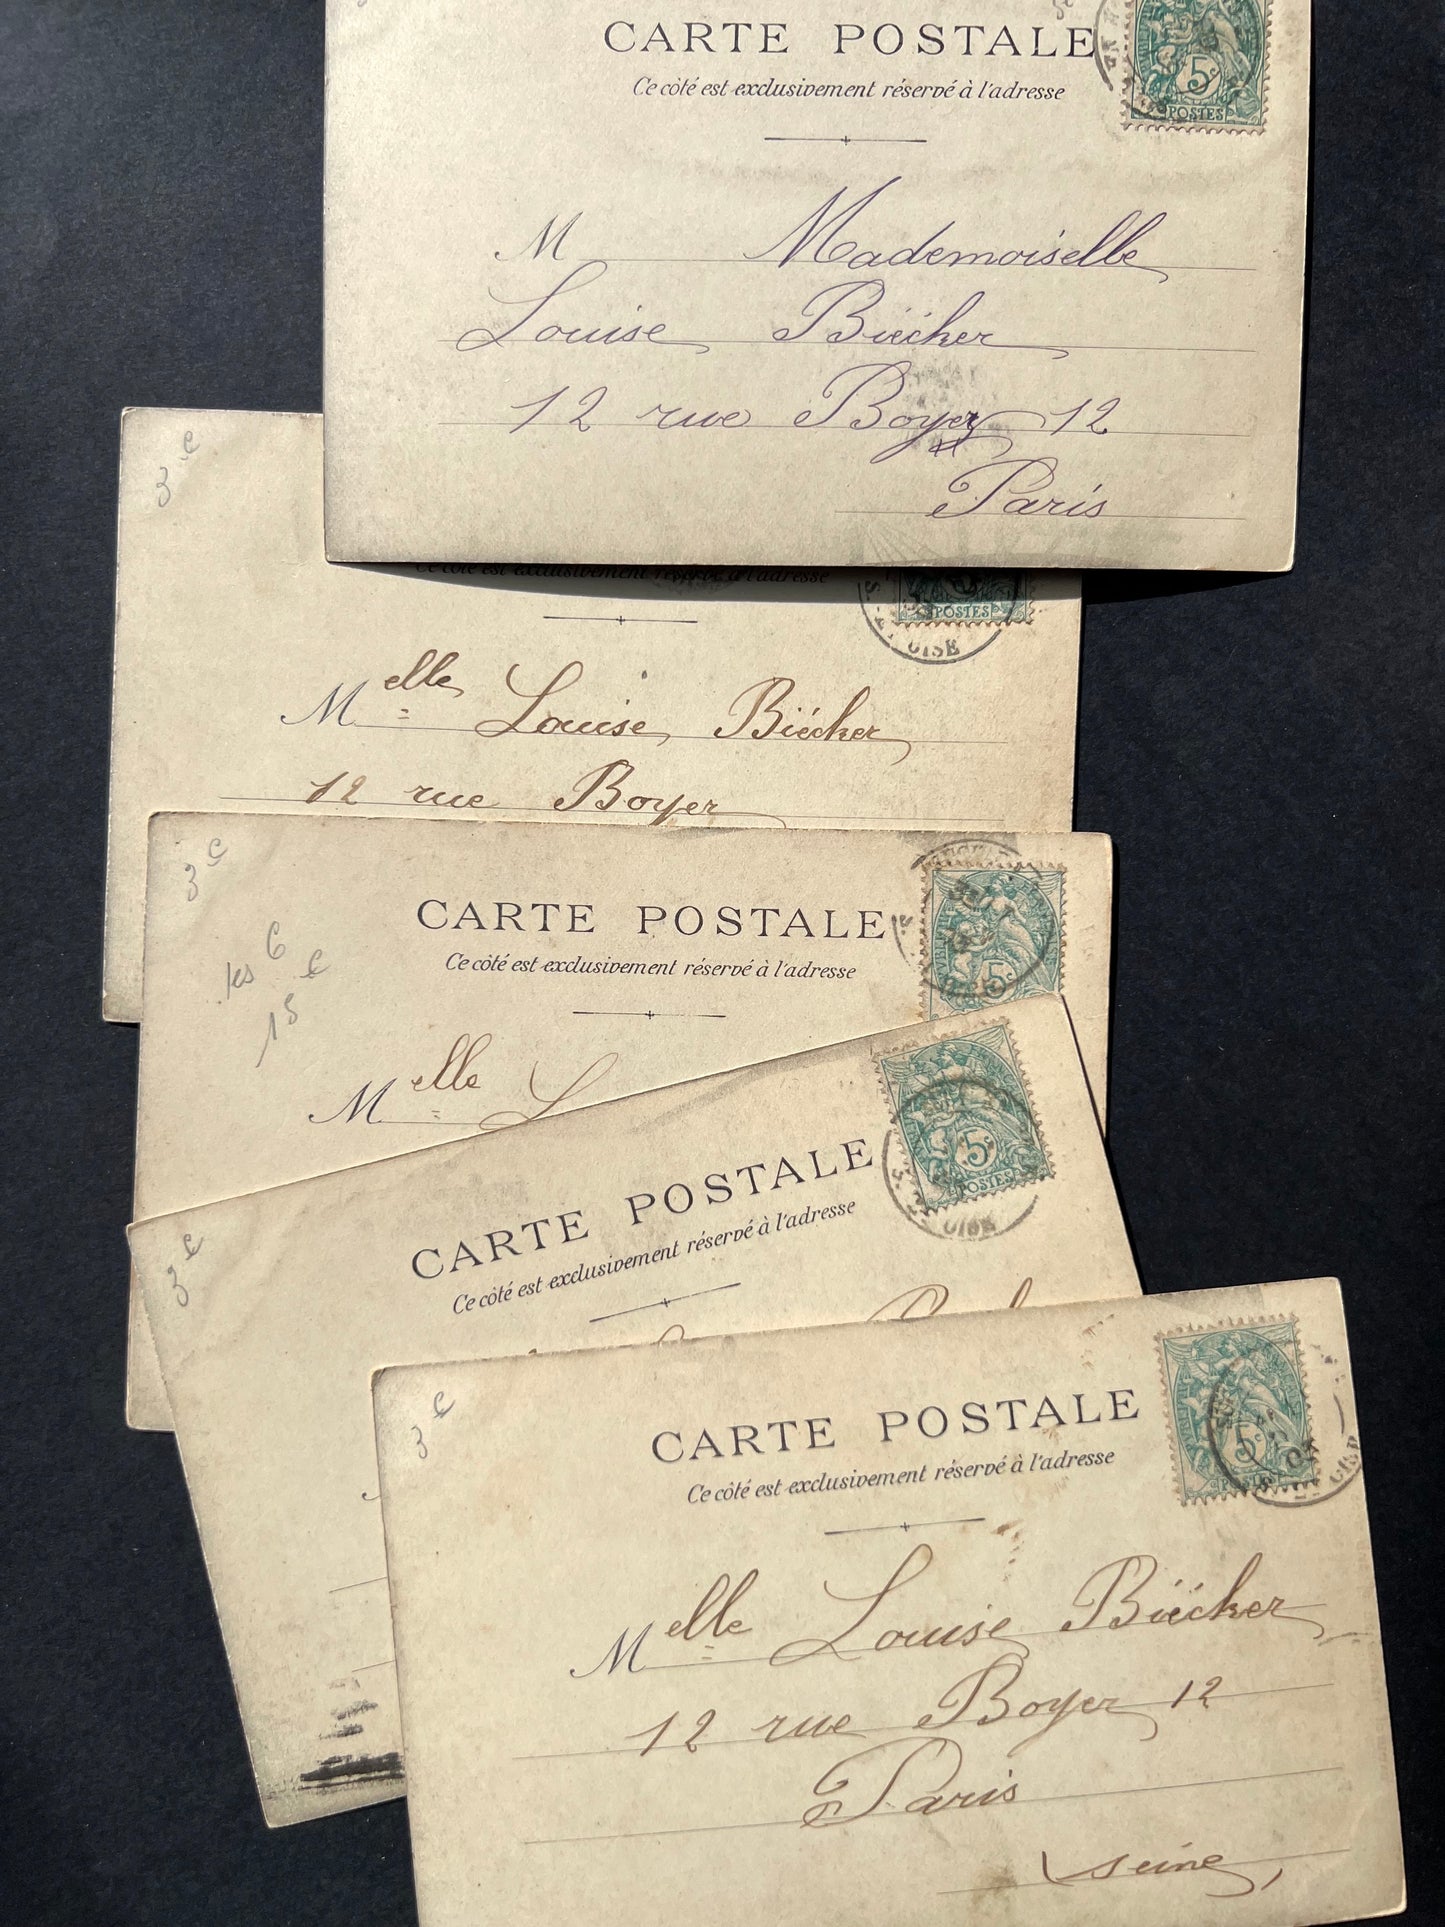 CARTE POSTALE
Ce côté est exclusivement réservé à l'adresse
5c
POSTES
M Mademoiselle
Louise Biécker
12 rue Boyer 12
Paris
3 e
Ce côté est exclusivement réservé à l'adresse
POSTES
OISE
Melle Louise Biécker
12 rue Boyer
3 e
les 6
15 e
CARTE POSTALE
Ce côté est exclusivement réservé à l'adresse
5c
Melle L
3 e
CARTE POSTALE
Ce côté est exclusivement réservé à l'adresse
5c
POSTES
OISE
3 e
CARTE POSTALE
Ce côté est exclusivement réservé à l'adresse
5c
POSTES
OISE
Melle Louise Biécker
12 rue Boyer 12
Paris
seine,